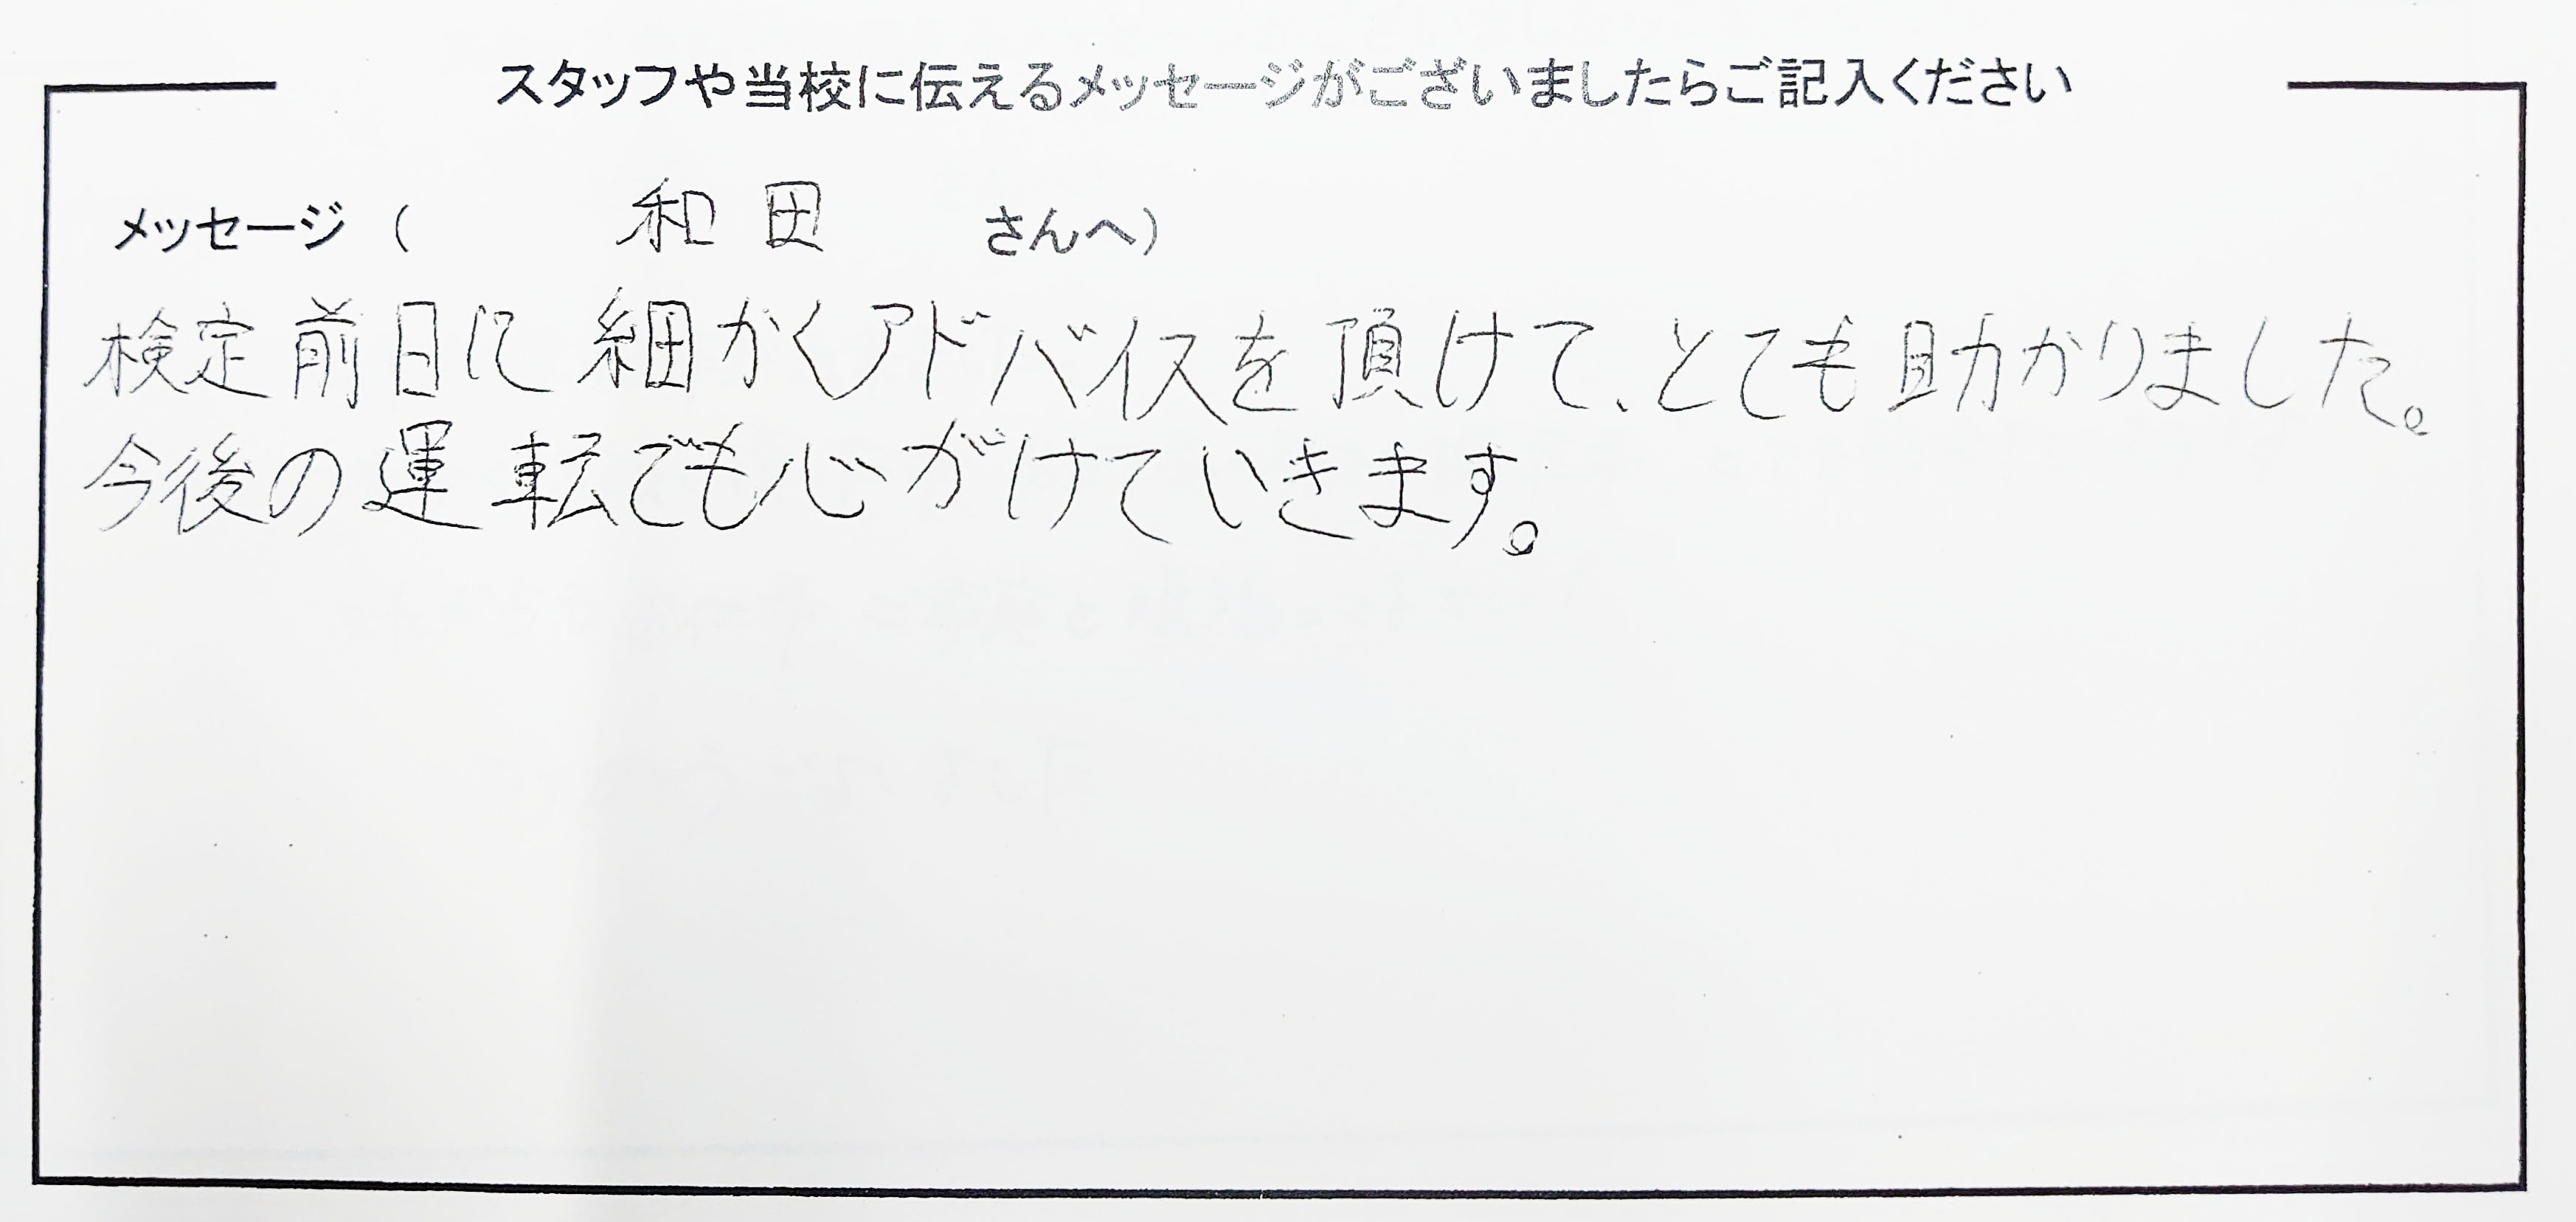 スタッフや当校に伝えるメッセージがございましたらご記入ください
メッセージ（ 和田 さんへ）
検定前日に細かくアドバイスを頂けて、とても助かりました。
今後の運転でも心がけていきます。